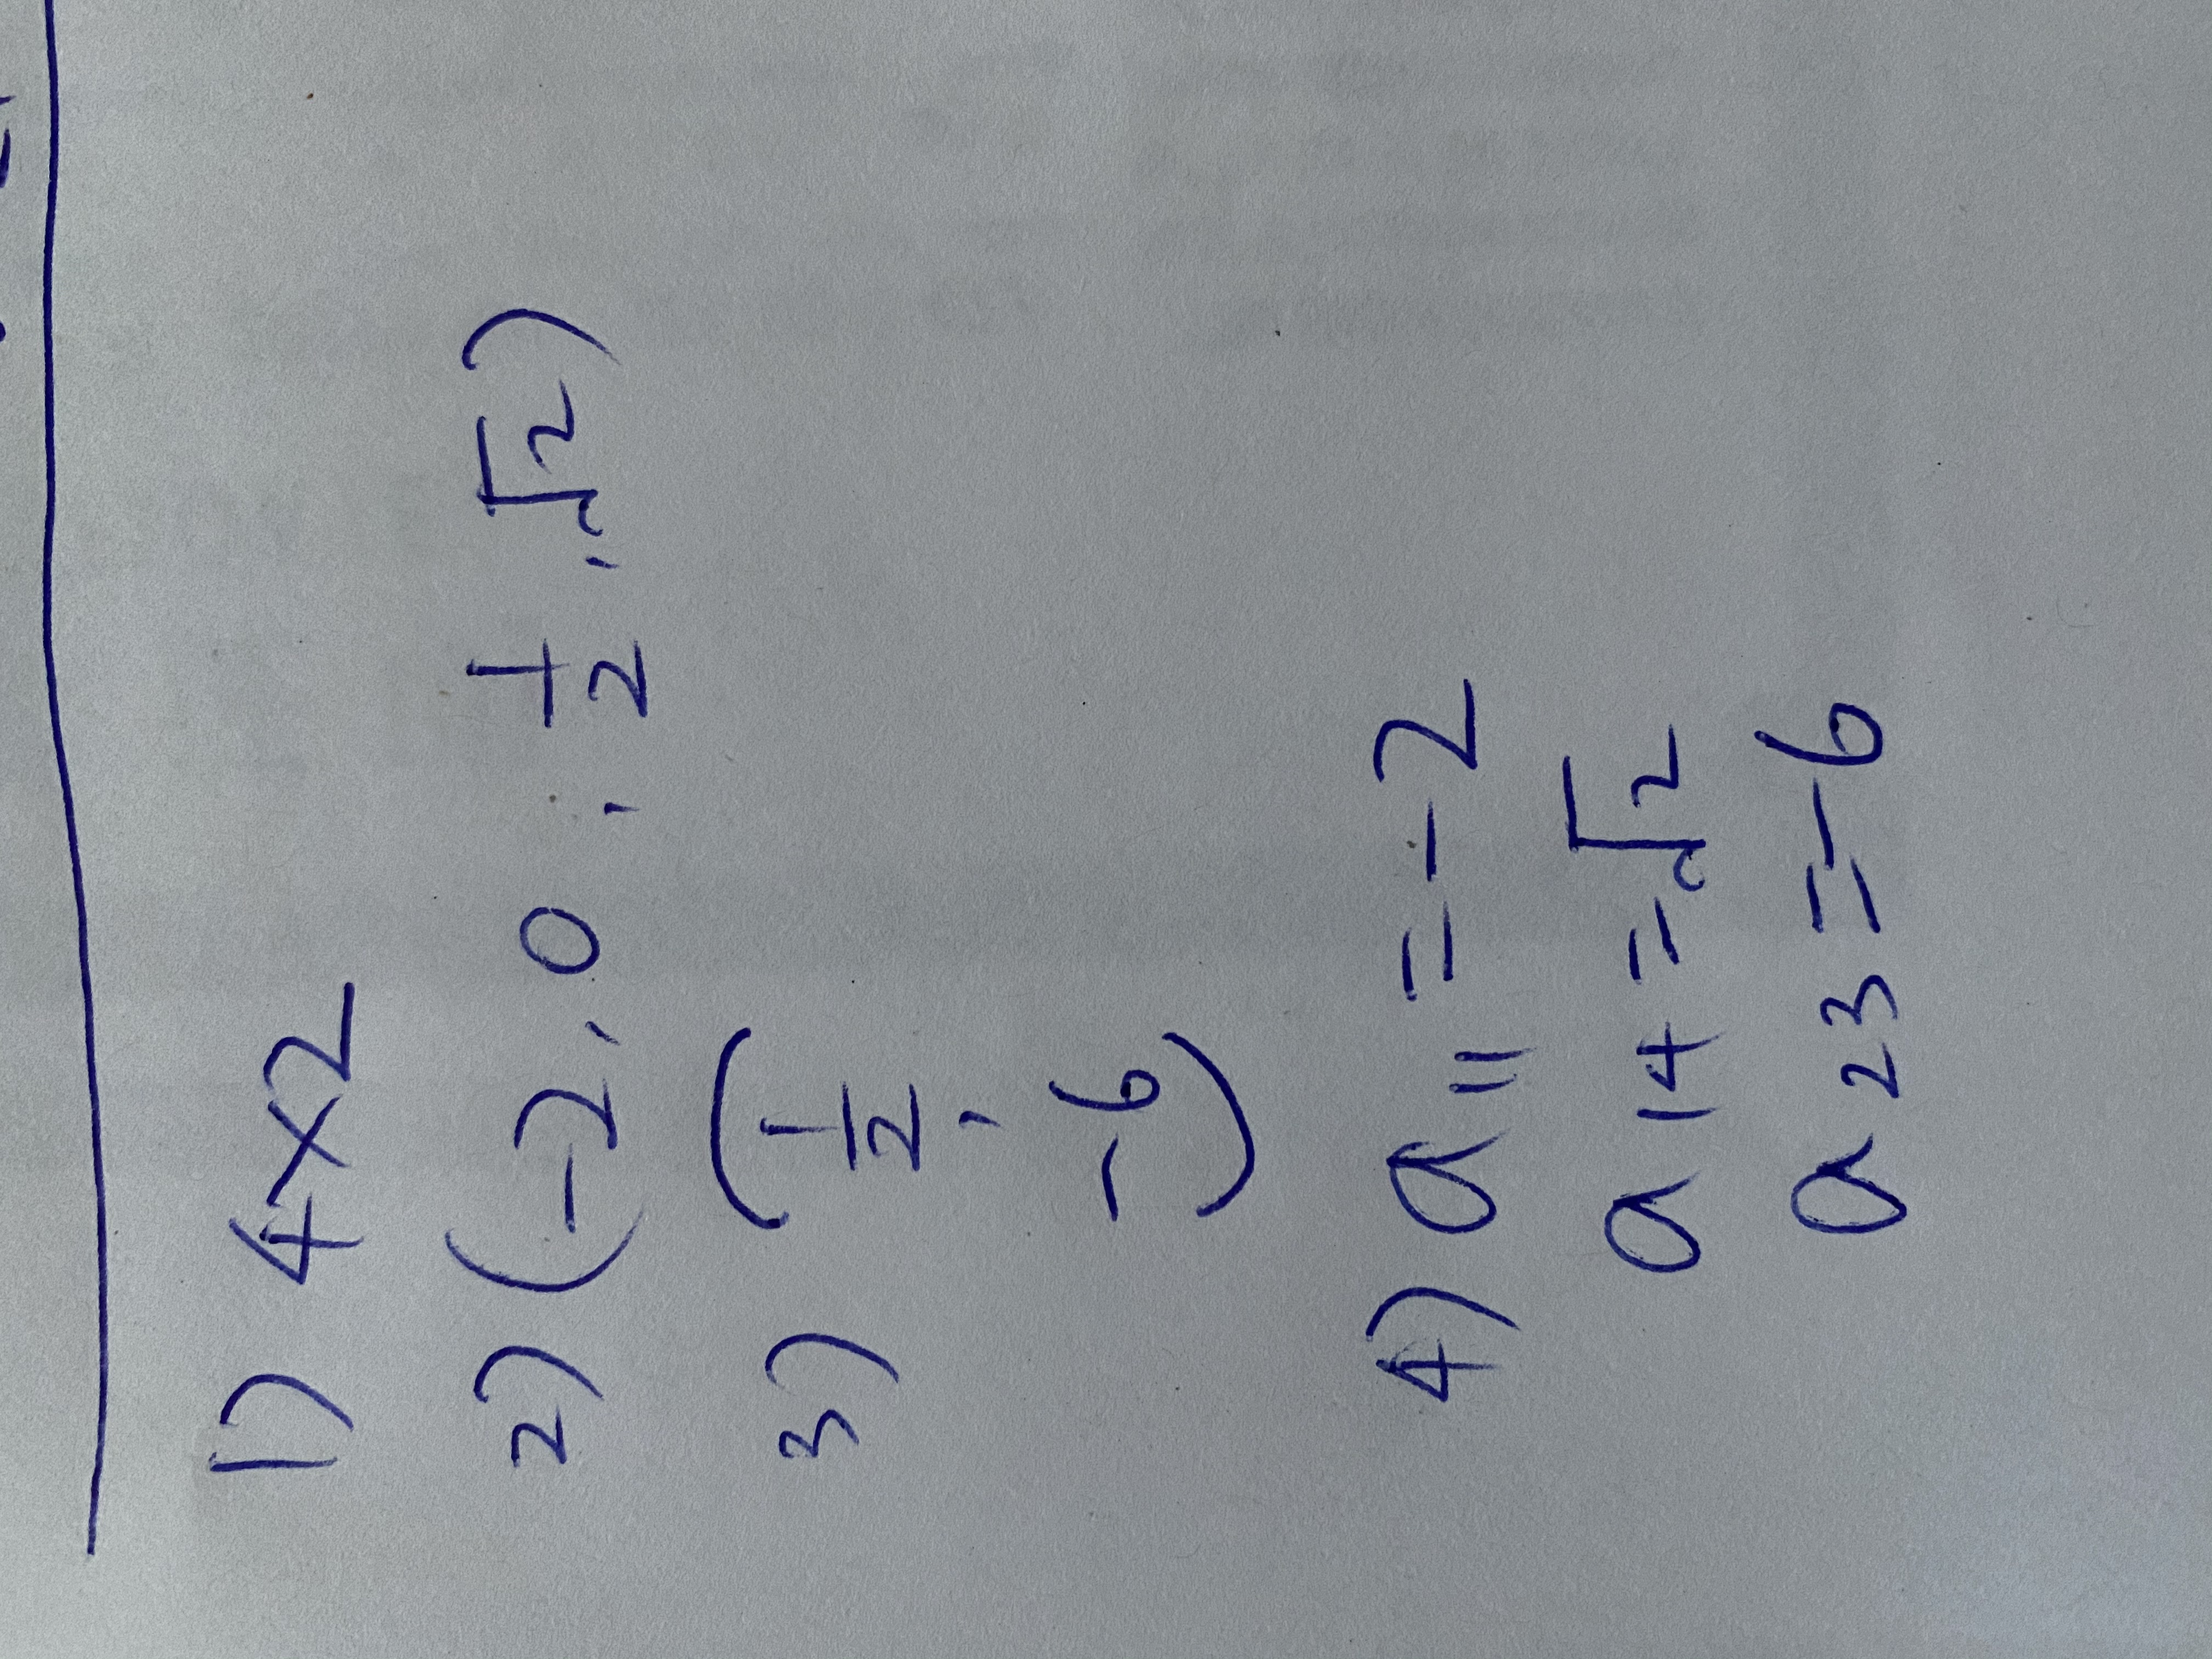 1) 4×2
2) (-2, 0, 1/2, √2)
3) (1/2
,
-6)
4) a₁₁ = -2
a₁₄ = √2
a₂₃ = -6